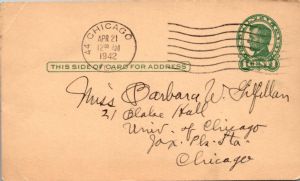 44 CHICAGO
APR 21
12 00 AM
1942
THIS SIDE OF CARD FOR ADDRESS
Miss Barbara W. Gilfillan
21 Blake Hall
Univ. of Chicago
Jax. Pk. Sta.
Chicago